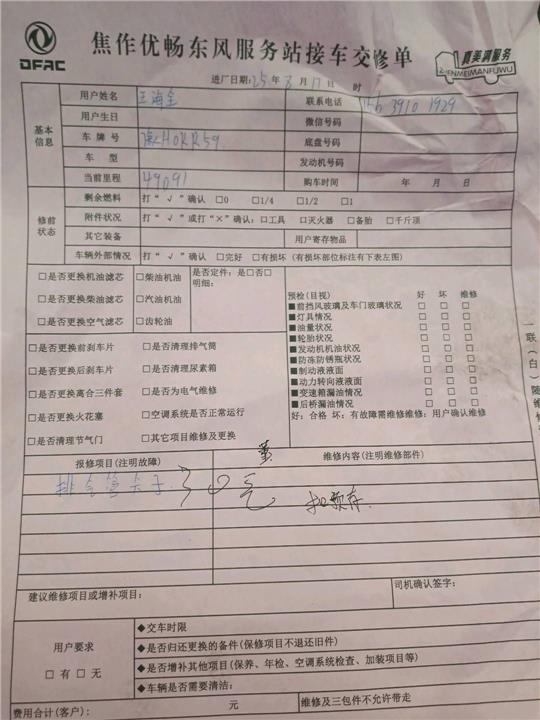 DFAC
焦作优畅东风服务站接车交修单
真美满服务
ZHENMEIMANFUWU
进厂日期:25年8月17日 时
基本信息
用户姓名 王海全 联系电话 156 3910 1929
用户生日 微信号码
车牌号 豫H0RR59 底盘号码
车型 发动机号码
当前里程 49091 购车时间 年 月 日
修前状态
剩余燃料 打“√”确认 □0 □1/4 □1/2 □1
附件状况 打“√”或打“×”确认:□工具 □灭火器 □备胎 □千斤顶
其它装备 用户寄存物品
车辆外部情况 打“√”确认 □完好 □有损坏 (有损坏部位标注有下表左图)
□是否更换机油滤芯 □柴油机油 是否定件:是□否□
明细:
□是否更换柴油滤芯 □汽油机油
□是否更换空气滤芯 □齿轮油
□是否更换前刹车片 □是否清理排气筒
□是否更换后刹车片 □是否清理尿素箱
□是否更换离合三件套 □是否为电气维修
□是否更换火花塞 □空调系统是否正常运行
□是否清理节气门 □其它项目维修及更换
预检(目视) 好 坏 维修
■前挡风玻璃及车门玻璃状况 □ □ □
■灯具情况 □ □ □
■油量状况 □ □ □
■轮胎状况 □ □ □
■发动机机油状况 □ □ □
■防冻防锈瓶状况 □ □ □
■制动液液面 □ □ □
■动力转向液液面 □ □ □
■变速箱漏油情况 □ □ □
■后桥漏油情况 □ □ □
好:合格 坏:有故障需维修维修:用户确认维修
报修项目(注明故障) 维修内容(注明维修部件)
排气管卡子 30元 扣预存
建议维修项目或增补项目: 司机确认签字:
用户要求
□有 □无
◆交车时限
◆是否归还更换的备件(保修项目不退还旧件)
◆是否增补其他项目(保养、年检、空调系统检查、加装项目等)
◆车辆是否需要清洁:
费用合计(客户): 元 维修及三包件不允许带走
一联(白)随维修